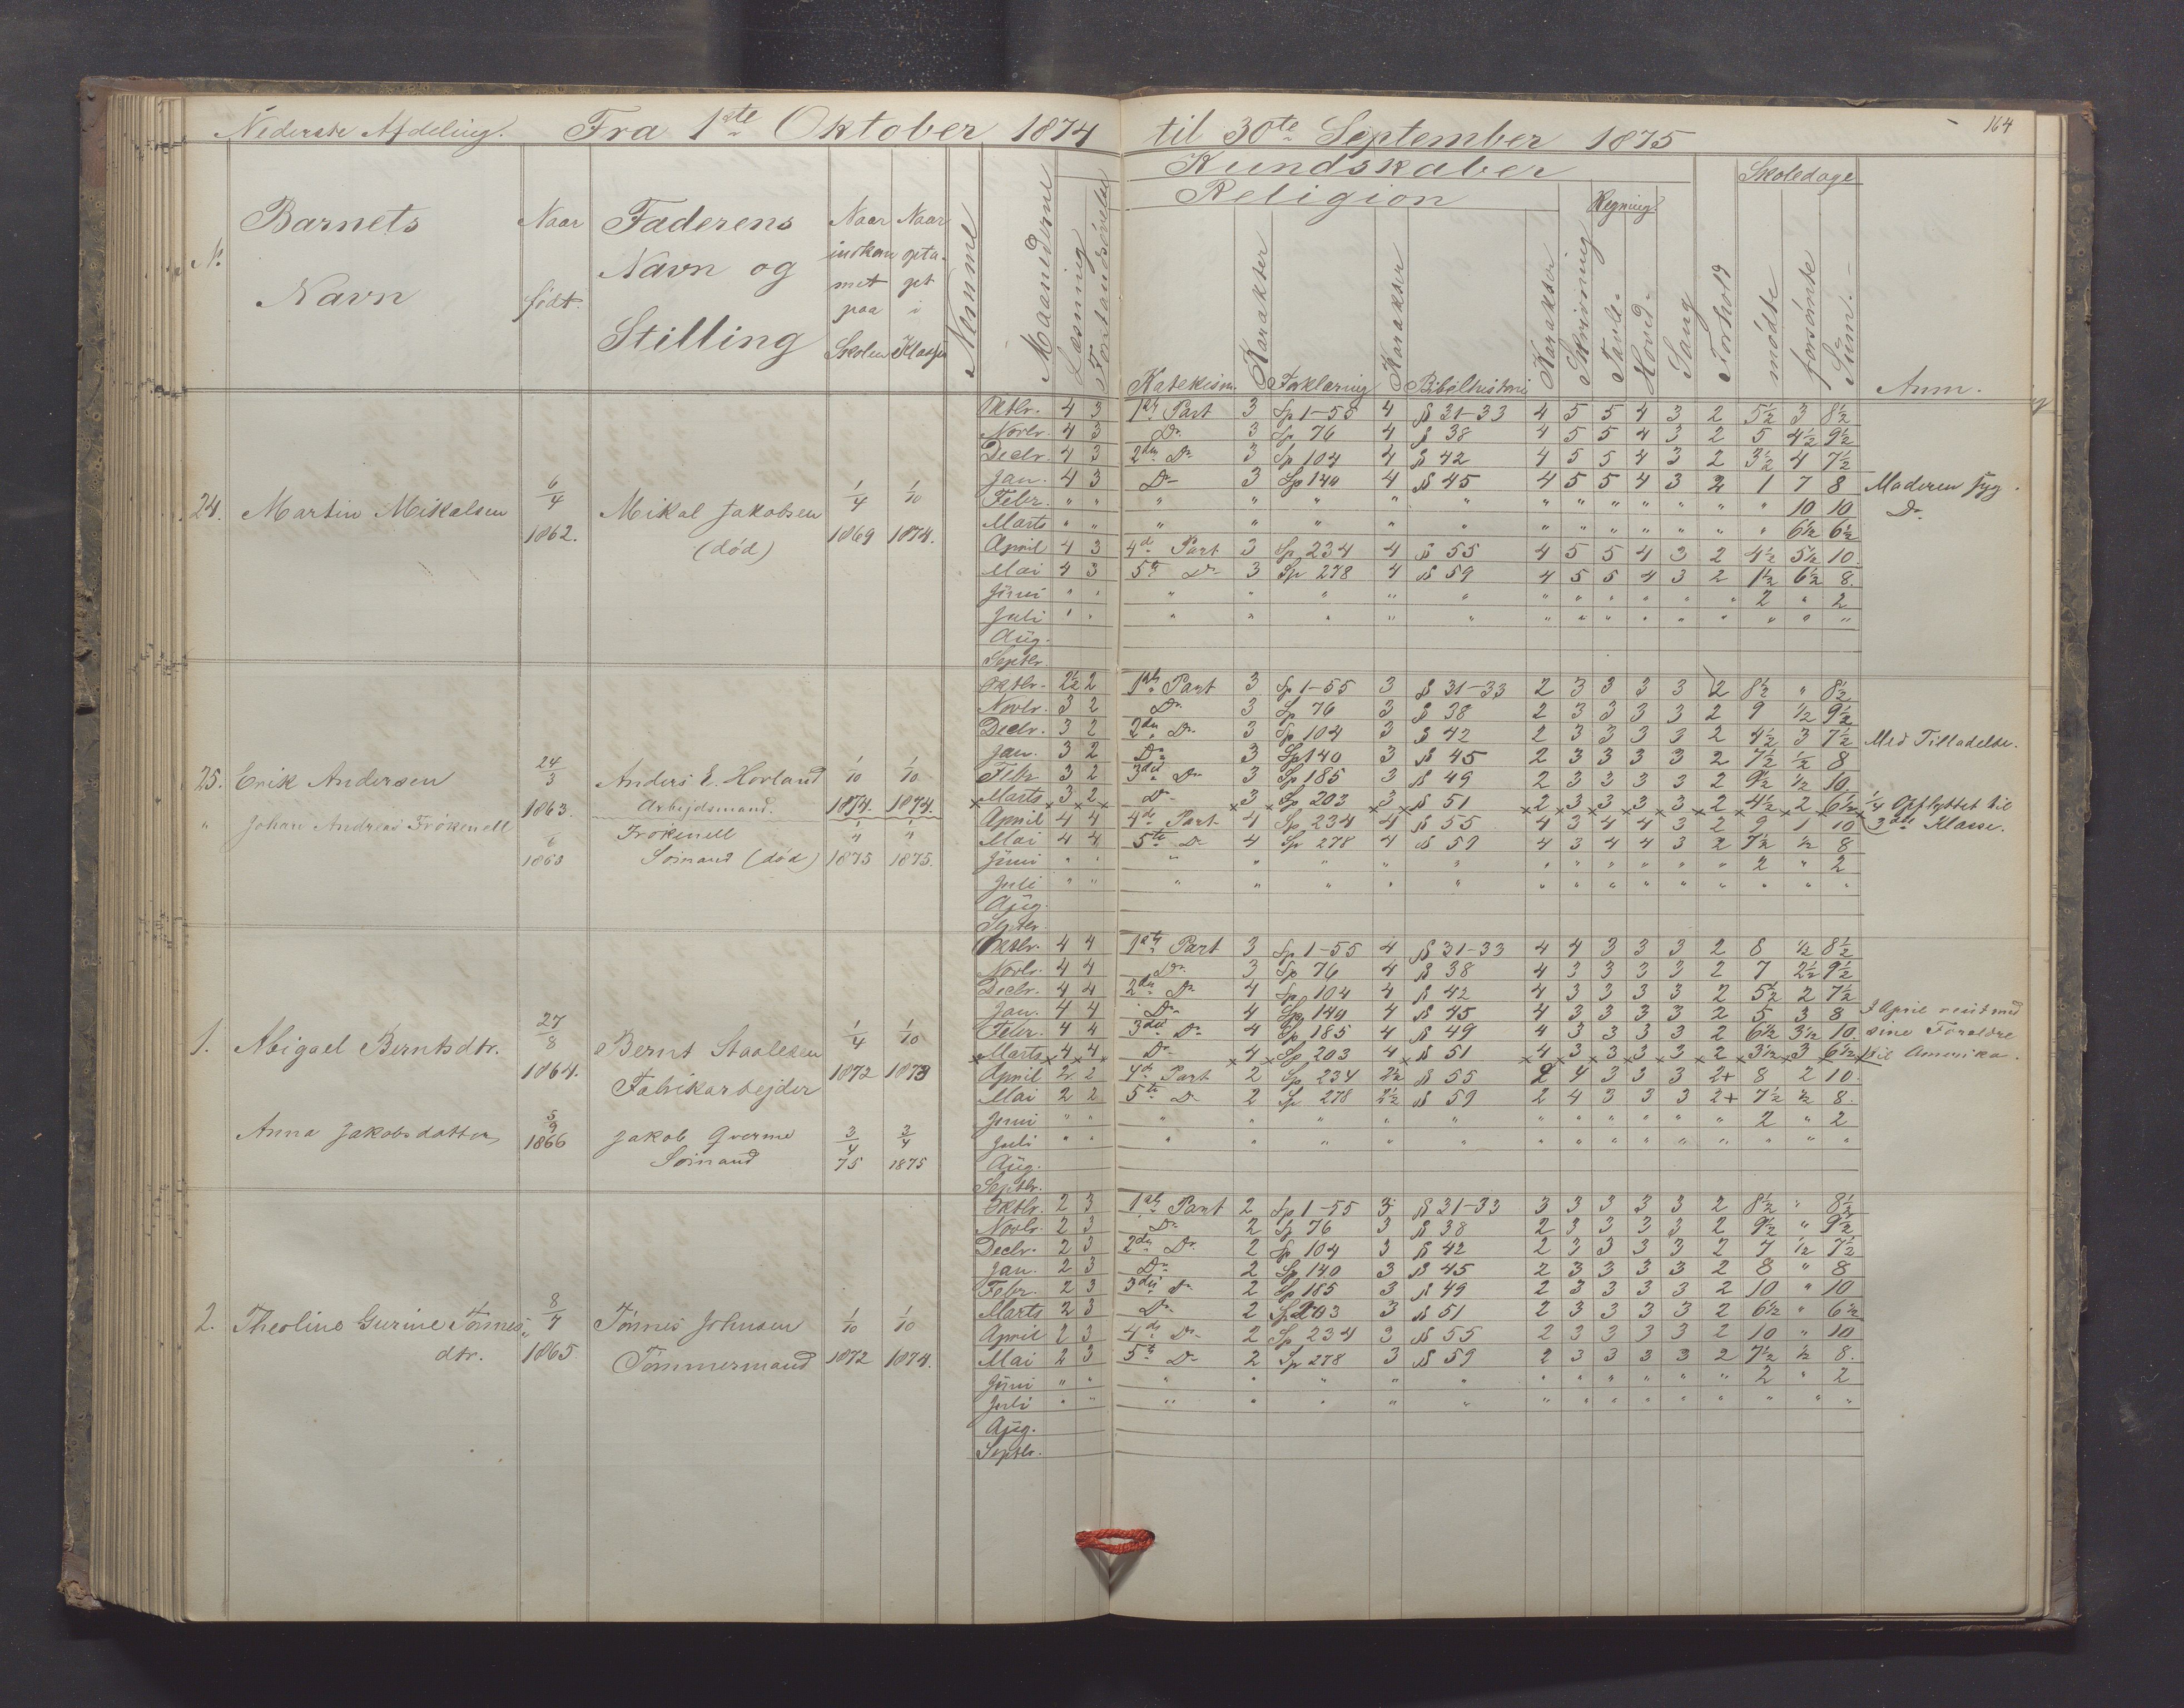 Nederste Afdeling. Fra 1ste Oktober 1874 til 30te September 1875 164
Kundskaber
Religion Regning Skoledage
No Barnets Navn Naar født. Faderens Navn og Stilling Naar indkommet paa Skolen Naar optaget i Klassen Maanederne Læsning Forstandsøvelse Katekism. Karakter Forklaring Karakter Bibelhistorie Karakter Skrivning Tavle- Hoved- Sang Forhold mødte forsømte Sum. Anm.
24. Martin Mikalsen 6/4 1862. Mikal Jakobsen (død) 1/4 1869 1/10 1874.
Oktbr. 4 3 1ste Part 3 Sp 1-55 4 § 31-33 4 5 5 4 3 2 5½ 3 8½
Novbr. 4 3 Do 3 Sp 76 4 § 38 4 5 5 4 3 2 5 4½ 9½
Decbr. 4 3 2den Do 3 Sp 104 4 § 42 4 5 5 4 3 2 3½ 4 7½
Jan. 4 3 Do 3 Sp 140 4 § 45 4 5 5 4 3 2 1 7 8 Moderen syg.
Febr. " " " " " " " " " " " " " " 10 10 Do
Marts " " " " " " " " " " " " " " 6½ 6½
April 4 3 4de Part 3 Sp 234 4 § 55 4 5 5 4 3 2 4½ 5½ 10
Mai 4 3 5te Do 3 Sp 278 4 § 59 4 5 5 4 3 2 1½ 6½ 8.
Juni " " " " " " " " " " " " " 2 " 2
Juli " " " " " " " " " " " " " " " "
Aug.
Septbr.
25. Erik Andersen 24/3 1863. Anders E. Hovland Arbejdsmand. 1/10 1874. 1/10 1874.
" Johan Andreas Frøkenell 6 1863 Frøkenell Sømand (død) 1875 1875.
Oktbr. 2½ 2 1ste Part 3 Sp 1-55 3 § 31-33 2 3 3 3 3 2 8½ " 8½
Novbr. 3 2 Do 3 Sp 76 3 § 38 2 3 3 3 3 2 9 ½ 9½
Decbr. 3 2 2den Do 3 Sp 104 3 § 42 2 3 3 3 3 2 4½ 3 7½ Med Tilladelse.
Jan. 3 2 Do 3 Sp 140 3 § 45 2 3 3 3 3 2 7½ ½ 8
Febr 3 2 3die Do 3 Sp 185 3 § 49 2 3 3 3 3 2 9½ ½ 10.
Marts 3 2 Do 3 Sp 203 3 § 51 2 3 3 3 3 2 4½ 2 6½ 1/4 Opflyttet til
April 4 4 4de Part 4 Sp 234 4 § 55 4 3 4 4 3 2 9 1 10 3die Klasse.
Mai 4 4 5te Do 4 Sp 278 4 § 59 4 3 4 4 3 2 7½ ½ 8
Juni " " " " " " " " " " " " " 2 " 2
Juli " " " " " " " " " " " " " " " "
Aug.
Septbr.
1. Abigael Berntsdtr. 27/8 1864. Bernt Staalesen Fabrikarbejder 1/4 1872 1/10 1873
Anna Jakobsdatter 5/9 1866 Jakob Sømand 3/4 75 3/4 1875
Oktbr. 4 4 1ste Part 3 Sp 1-55 4 § 31-33 4 4 3 3 3 2 8 ½ 8½
Novbr. 4 4 Do 3 Sp 76 4 § 38 4 3 3 3 3 2 7 2½ 9½
Decbr. 4 4 2den Do 4 Sp 104 4 § 42 4 3 3 3 3 2 5½ 2 7½
Jan. 4 4 Do 4 Sp 140 4 § 45 4 3 3 3 3 2 5 3 8 I April reist med
Febr. 4 4 3die Do 4 Sp 185 4 § 49 4 3 3 3 3 2 6½ 3½ 10. sine Forældre
Marts 4 4 Do 4 Sp 203 4 § 51 4 3 3 3 3 2 3½ 3 6½ til Amerika.
April 2 2 4de Part 2 Sp 234 2½ § 55 2 4 3 3 3 2+ 8 2 10.
Mai 2 2 5te Do 2 Sp 278 2½ § 59 2 4 3 3 3 2+ 7½ ½ 8.
Juni " " " " " " " " " " " " " 2 " 2
Juli " " " " " " " " " " " " " " " "
Aug.
Septbr.
2. Theoline Gurine Tønnesdtr. 8/7 1865 Tønnes Johnsen Tømmermand 1/10 1872 1/10 1874.
Oktbr. 2 3 1ste Part 2 Sp 1-55 3 § 31-33 3 3 3 3 3 2 8½ " 8½
Novbr. 2 3 Do 2 Sp 76 3 § 38 2 3 3 3 3 2 9½ " 9½
Decbr. 2 3 2den Do. 2 Sp 104 3 § 42 2 3 3 3 3 2 7 ½ 7½
Jan. 2 3 Do 2 Sp 140 3 § 45 2 3 3 3 3 2 8 " 8
Febr. 2 3 3die Do 2 Sp 185 3 § 49 2 3 3 3 3 2 10 " 10
Marts 2 3 Do 2 Sp 203 3 § 51 2 3 3 3 3 2 6½ " 6½
April 2 3 4de Do 2 Sp 234 3 § 55 2 3 3 3 3 2 10 " 10
Mai 2 3 5te Do 2 Sp 278 3 § 59 2 3 3 3 3 2 7½ ½ 8.
Juni " " " " " " " " " " " " " 2 " 2
Juli " " " " " " " " " " " " " " " "
Aug.
Septbr.